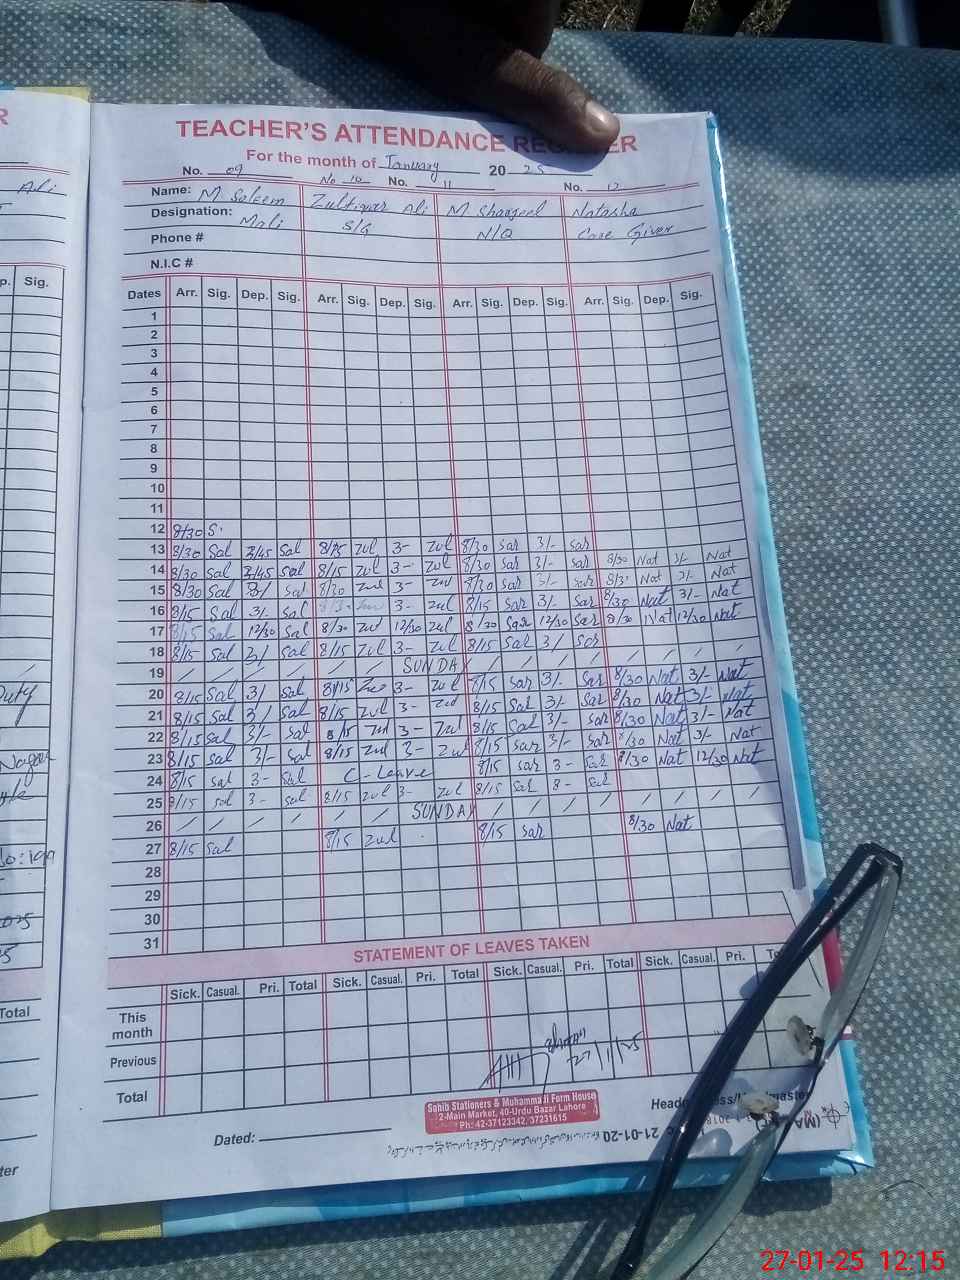 TEACHER'S ATTENDANCE REGISTER
For the month of January 20 25
No. 09 No 10 No. 11 No. 12
Name: M Saleem Zulfiqar Ali M Sharjeel Natasha
Designation: Mali S/G N/Q Care Giver
Phone #
N.I.C #
Dates Arr. Sig. Dep. Sig. Arr. Sig. Dep. Sig. Arr. Sig. Dep. Sig. Arr. Sig. Dep. Sig.
1
2
3
4
5
6
7
8
9
10
11
12 8/30 S.
13 8/30 Sal 2/45 Sal 8/15 Zul 3- Zul 8/30 Sar 3/- Sar
14 8/30 Sal 2/45 Sal 8/15 Zul 3- Zul 8/30 Sar 3/- Sar 8/30 Nat 3/- Nat
15 8/30 Sal 3/ Sal 8/30 Zul 3- Zul 8/30 Sar 3/- Sar 8/30 Nat 3/- Nat
16 8/15 Sal 3/- Sal 3- Zul 8/15 Sar 3/- Sar 8/30 Nat 3/- Nat
17 8/15 Sal 12/30 Sal 8/30 Zul 12/30 Zul 8/30 Sar 12/30 Sar 8/30 Nat 12/30 Nat
18 8/15 Sal 3/ Sal 8/15 Zul 3- Zul 8/15 Sal 3/ Sar
19 / / / / / / / SUNDAY / / / / / / / /
20 8/15 Sal 3/ Sal 8/15 Zul 3- Zul 8/15 Sar 3/- Sar 8/30 Nat 3/- Nat
21 8/15 Sal 3/ Sal 8/15 Zul 3- Zul 8/15 Sar 3/- Sar 8/30 Nat 3/- Nat
22 8/15 Sal 3/- Sal 8/15 Zul 3- Zul 8/15 Sal 3/- Sar 8/30 Nat 3/- Nat
23 8/15 Sal 3/- Sal 8/15 Zul 3- Zul 8/15 Sar 3/- Sar 8/30 Nat 3/- Nat
24 8/15 Sal 3- Sal C-Leave 8/15 Sar 3- Sar 8/30 Nat 12/30 Nat
25 8/15 Sal 3- Sal 8/15 Zul 3- Zul 8/15 Sar 8- Sal
26 / / / / / / / SUNDAY / / / / / / / /
27 8/15 Sal 8/15 Zul 8/15 Sar 8/30 Nat
28
29
30
31
STATEMENT OF LEAVES TAKEN
Sick. Casual. Pri. Total Sick. Casual. Pri. Total Sick. Casual. Pri. Total Sick. Casual. Pri.
This month
Previous
Total
27/1/25
Sahib Stationers & Muhammadi Form House
2-Main Market, 40-Urdu Bazar Lahore
Ph: 42-37123342, 37231615
Dated:
21-01-20
R
Ali
p. Sig.
Duty
Nagar
025
5
Total
ter
27-01-25 12:15